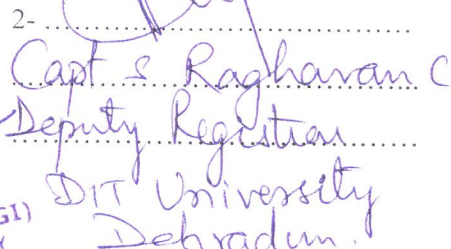 2-
Capt S Raghavan C
Deputy Registrar
DIT University
GI)
Dehradun.